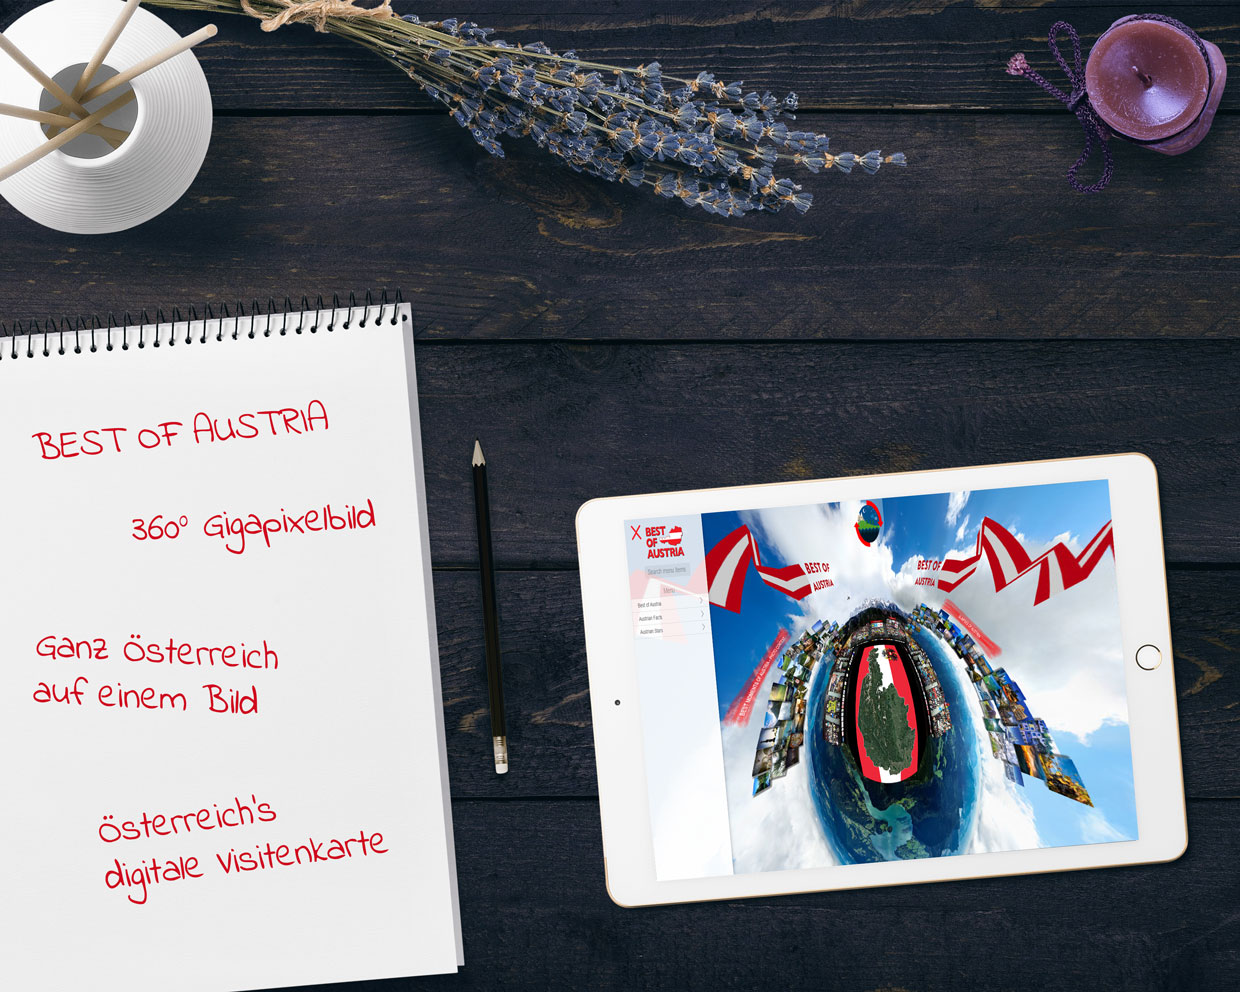 BEST OF AUSTRIA
360° Gigapixelbild
Ganz Österreich
auf einem Bild
Österreich's
digitale Visitenkarte
BEST
OF
AUSTRIA
Search menu items
Menu
Best of Austria
Austrian Facts
Austrian Stars
BEST OF
AUSTRIA
BEST OF
AUSTRIA